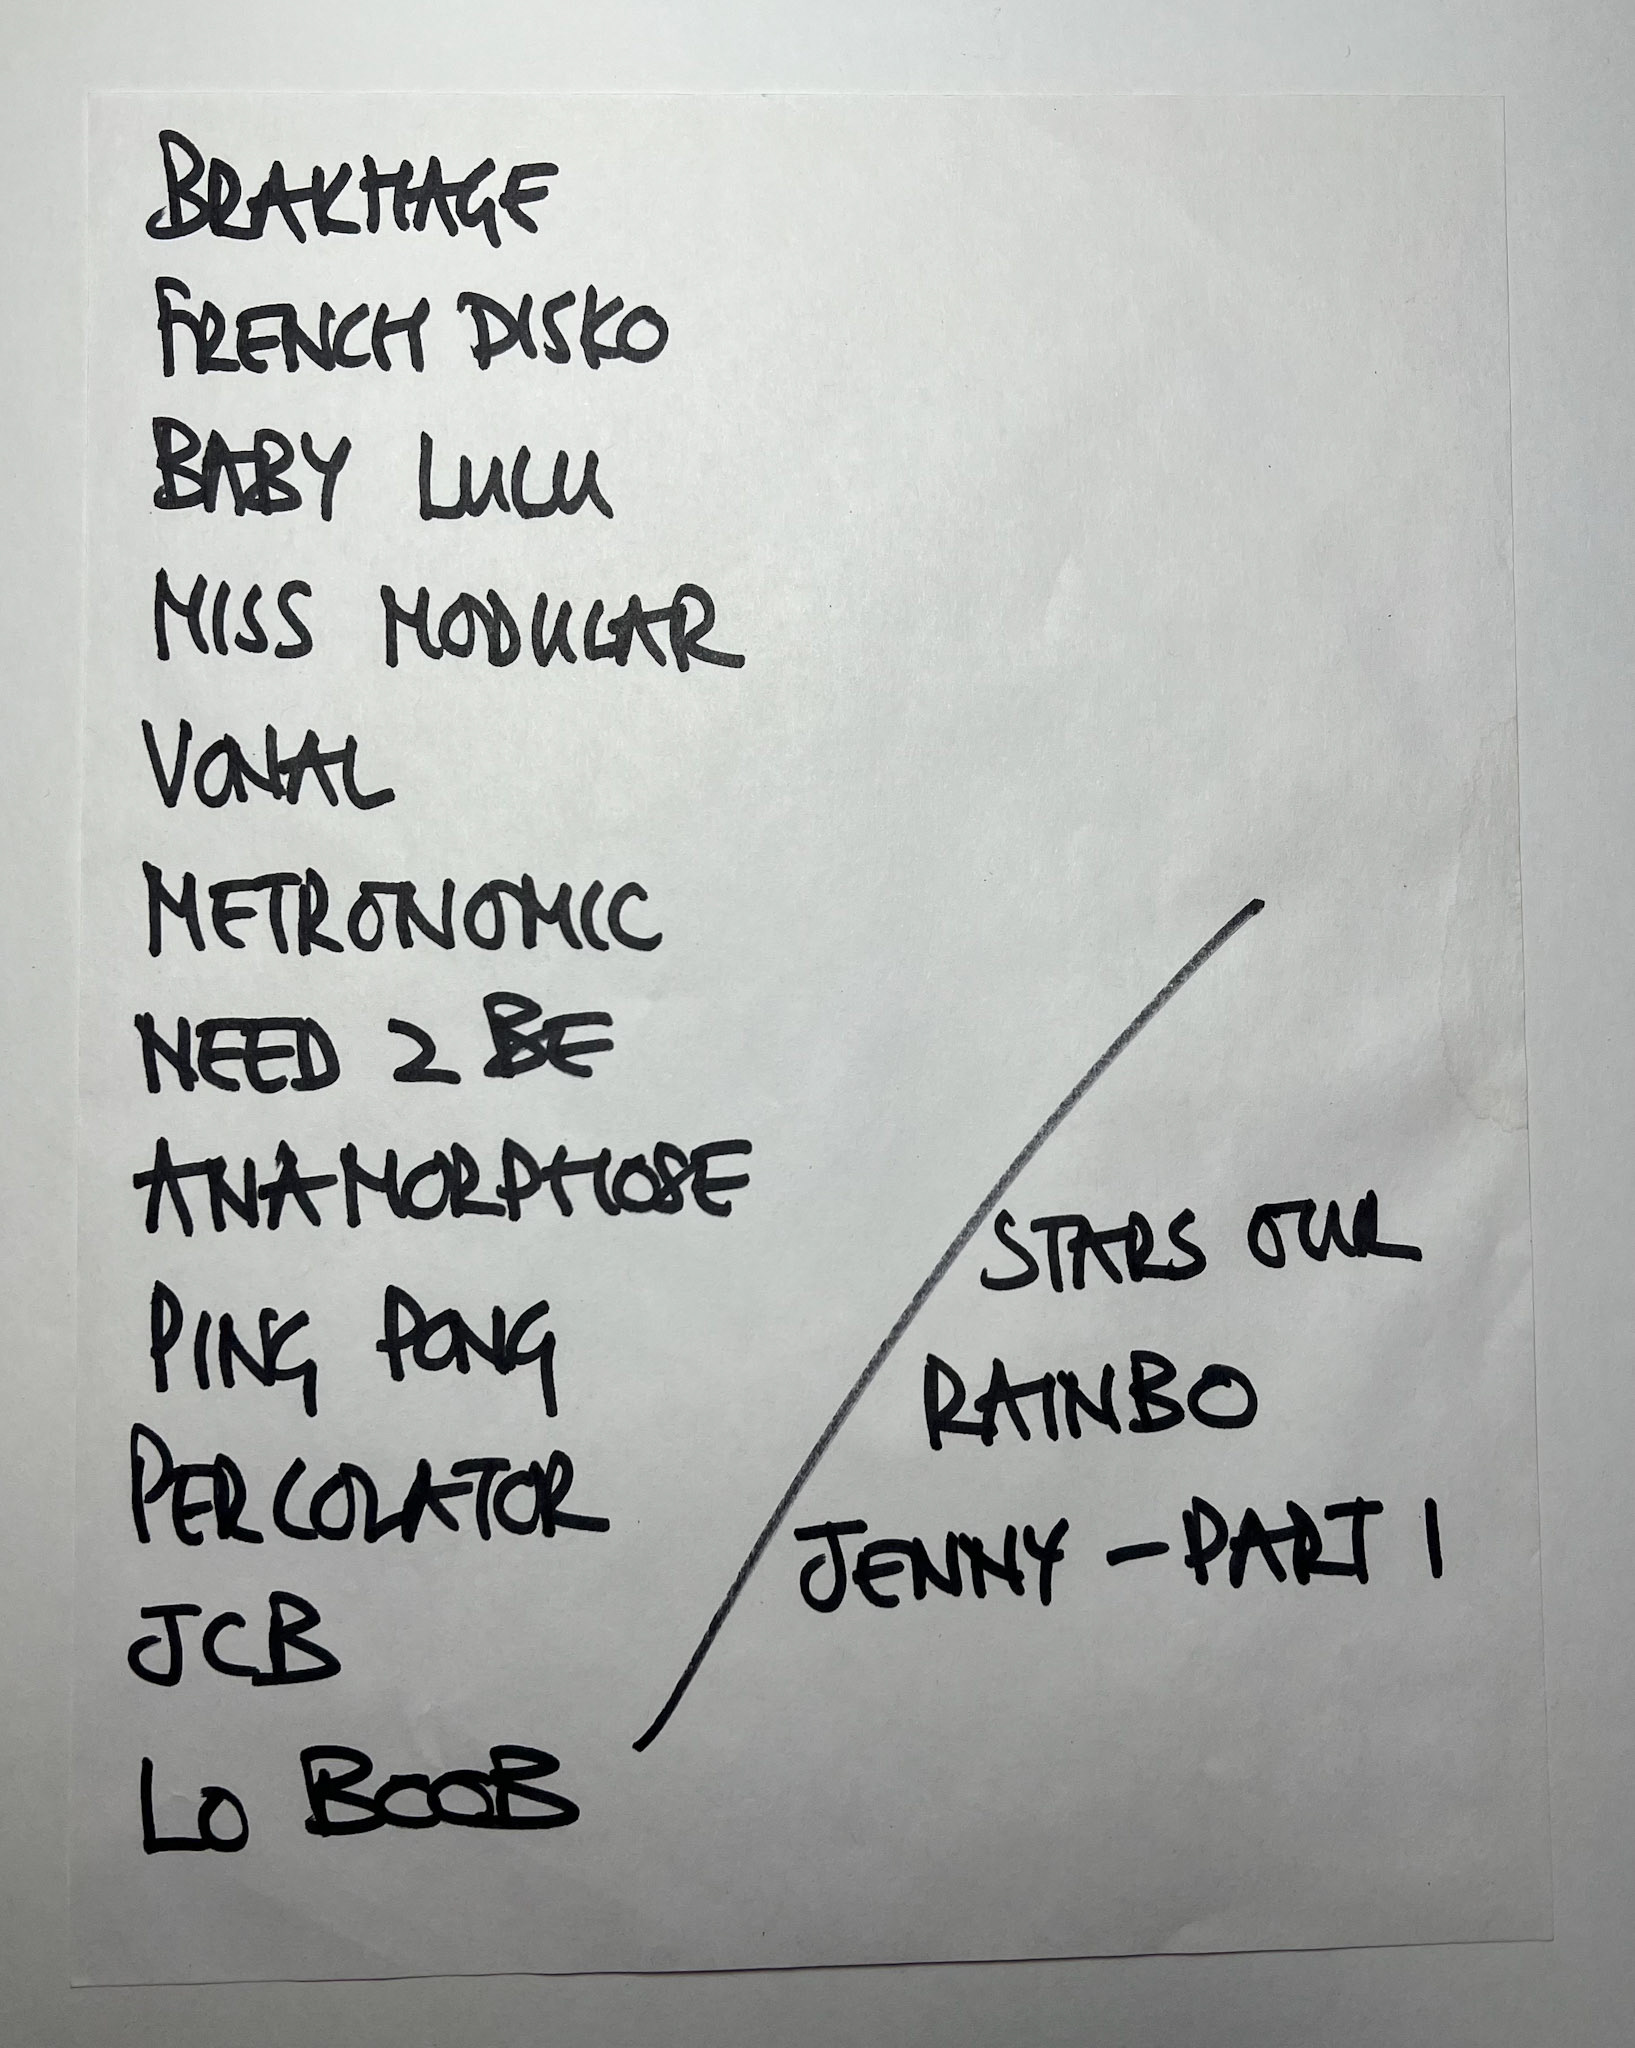 BRAKHAGE
FRENCH DISKO
BABY LULU
MISS MODULAR
VONAL
METRONOMIC
NEED 2 BE
ANAMORPHOSE
PING PONG
PERCOLATOR
JCB
LO BOOB
STARS OUR
RAINBO
JENNY - PART 1